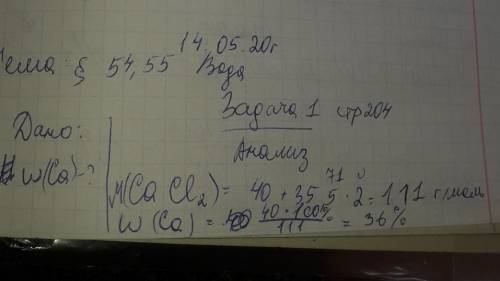 14.05.20г
Тема: § 54,55 Вода
Задача 1 стр 204
Дано:
Анализ
W(Ca)-?
71
M(CaCl₂) = 40 + 35,5 · 2 = 111 г/моль
W(Ca) = 40·100% / 111 = 36%